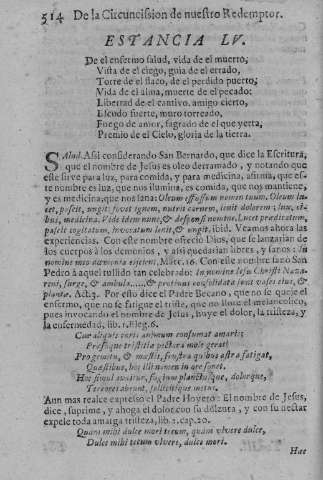 514 De la Circuncission de nuestro Redemptor.
ESTANCIA LV.
De el enfermo salud, vida de el muerto,
Vista de el ciego, guia de el errado,
Torre de el flaco, de el perdido puerto;
Vida de el alma, muerte de el pecado:
Libertad de el cantivo, amigo cierto,
Escudo fuerte, muro torreado,
Fuego de amor, sagrado de el que yerra,
Premio de el Cielo, gloria de la tierra.
SAlud. Assi considerando San Bernardo, que dice la Escritura,
que el nombre de Jesus es oleo derramado, y notando que
este sirve para luz, para comida, y para medicina, afirma, que es-
te nombre es luz, que nos ilumina, es comida, que nos mantiene,
y es medicina, que nos sana: Oleum effussum nomen tuum. Oleum lu-
cet, pascit, ungit: fovet ignem, nutrit carnem, lenit dolorem: lux, ci-
bus, medicina. Vide idem nunc, & de sponsi nomine. Lucet praedicatum,
pascit cogitatum, invocatum lenit, & ungit, ibid. Veamos ahora las
experiencias. Con este nombre ofrecio Dios, que se lanzarian de
los cuerpos à los demonios, y assi quedarian libres, y sanos: In
nomine meo daemonia ejicient, Marc. 16. Con este nombre sanò San
Pedro à aquel tullido tan celebrado: In nomine Iesu Christi Naza-
reni, surge, & ambula..... & protinus consolidatae sunt bases eius, &
plantae, Act. 3. Por esto dice el Padre Becano, que no se queje el
enfermo, que no se fatigue el triste, que no llore el melancolico,
pues invocando el nombre de Jesus, huye el dolor, la tristeza, y
la enfermedad, lib. 1. Eleg. 6.
Cur aliquis curis animum consumat amaris;
Pressaque tristitia pectora mole gerat?
Pro gemitu, & mæstis, sinistra quibus astra fatigat,
Quæstibus, hos illi nomen in ore sonet.
Hoc simul auditur, fugiunt planctusque, dolorque,
Terrores abeunt, sollicitique metus.
Aun mas realce expresso el Padre Hoyero: El nombre de Jesus,
dice, suprime, y ahoga el dolor con su dulzura, y con su nectar
expele toda amarga tristeza, lib. 2. cap. 20.
Quam mihi dulce mori tecum, quam vivere dulce,
Dulce mihi tecum vivere, dulce mori.
Hac